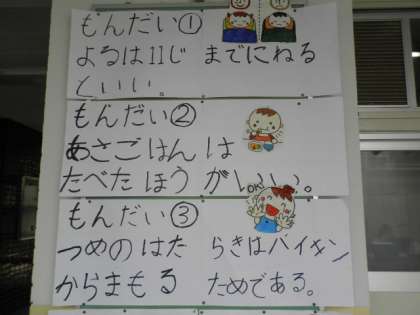 もんだい①
よるは11じ までにねる
といい。
もんだい②
あさごはんは
たべたほうがいい。
OK!
もんだい③
つめのはた らきはバイキン
からまもる ためである。